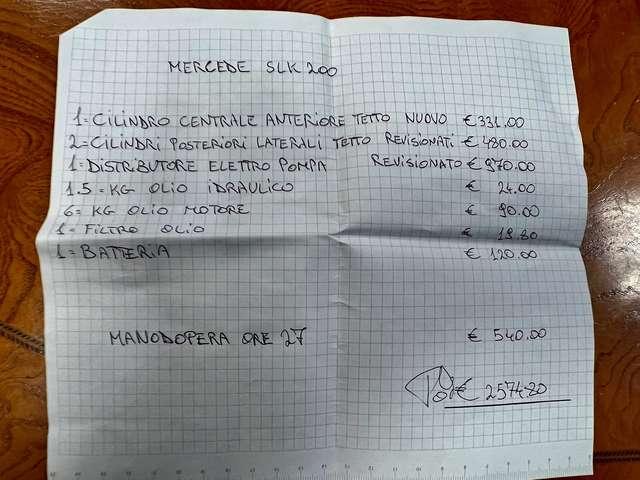 MERCEDE SLK 200
1=CILINDRO CENTRALE ANTERIORE TETTO NUOVO € 331.00
2=CILINDRI POSTERIORI LATERALI TETTO REVISIONATI € 480.00
1=DISTRIBUTORE ELETTRO POMPA REVISIONATO € 970.00
1.5=KG OLIO IDRAULICO € 24.00
6=KG OLIO MOTORE € 90.00
1=FILTRO OLIO € 19.80
1=BATTERIA € 120.00
MANODOPERA ORE 27 € 540.00
€ 2574.80